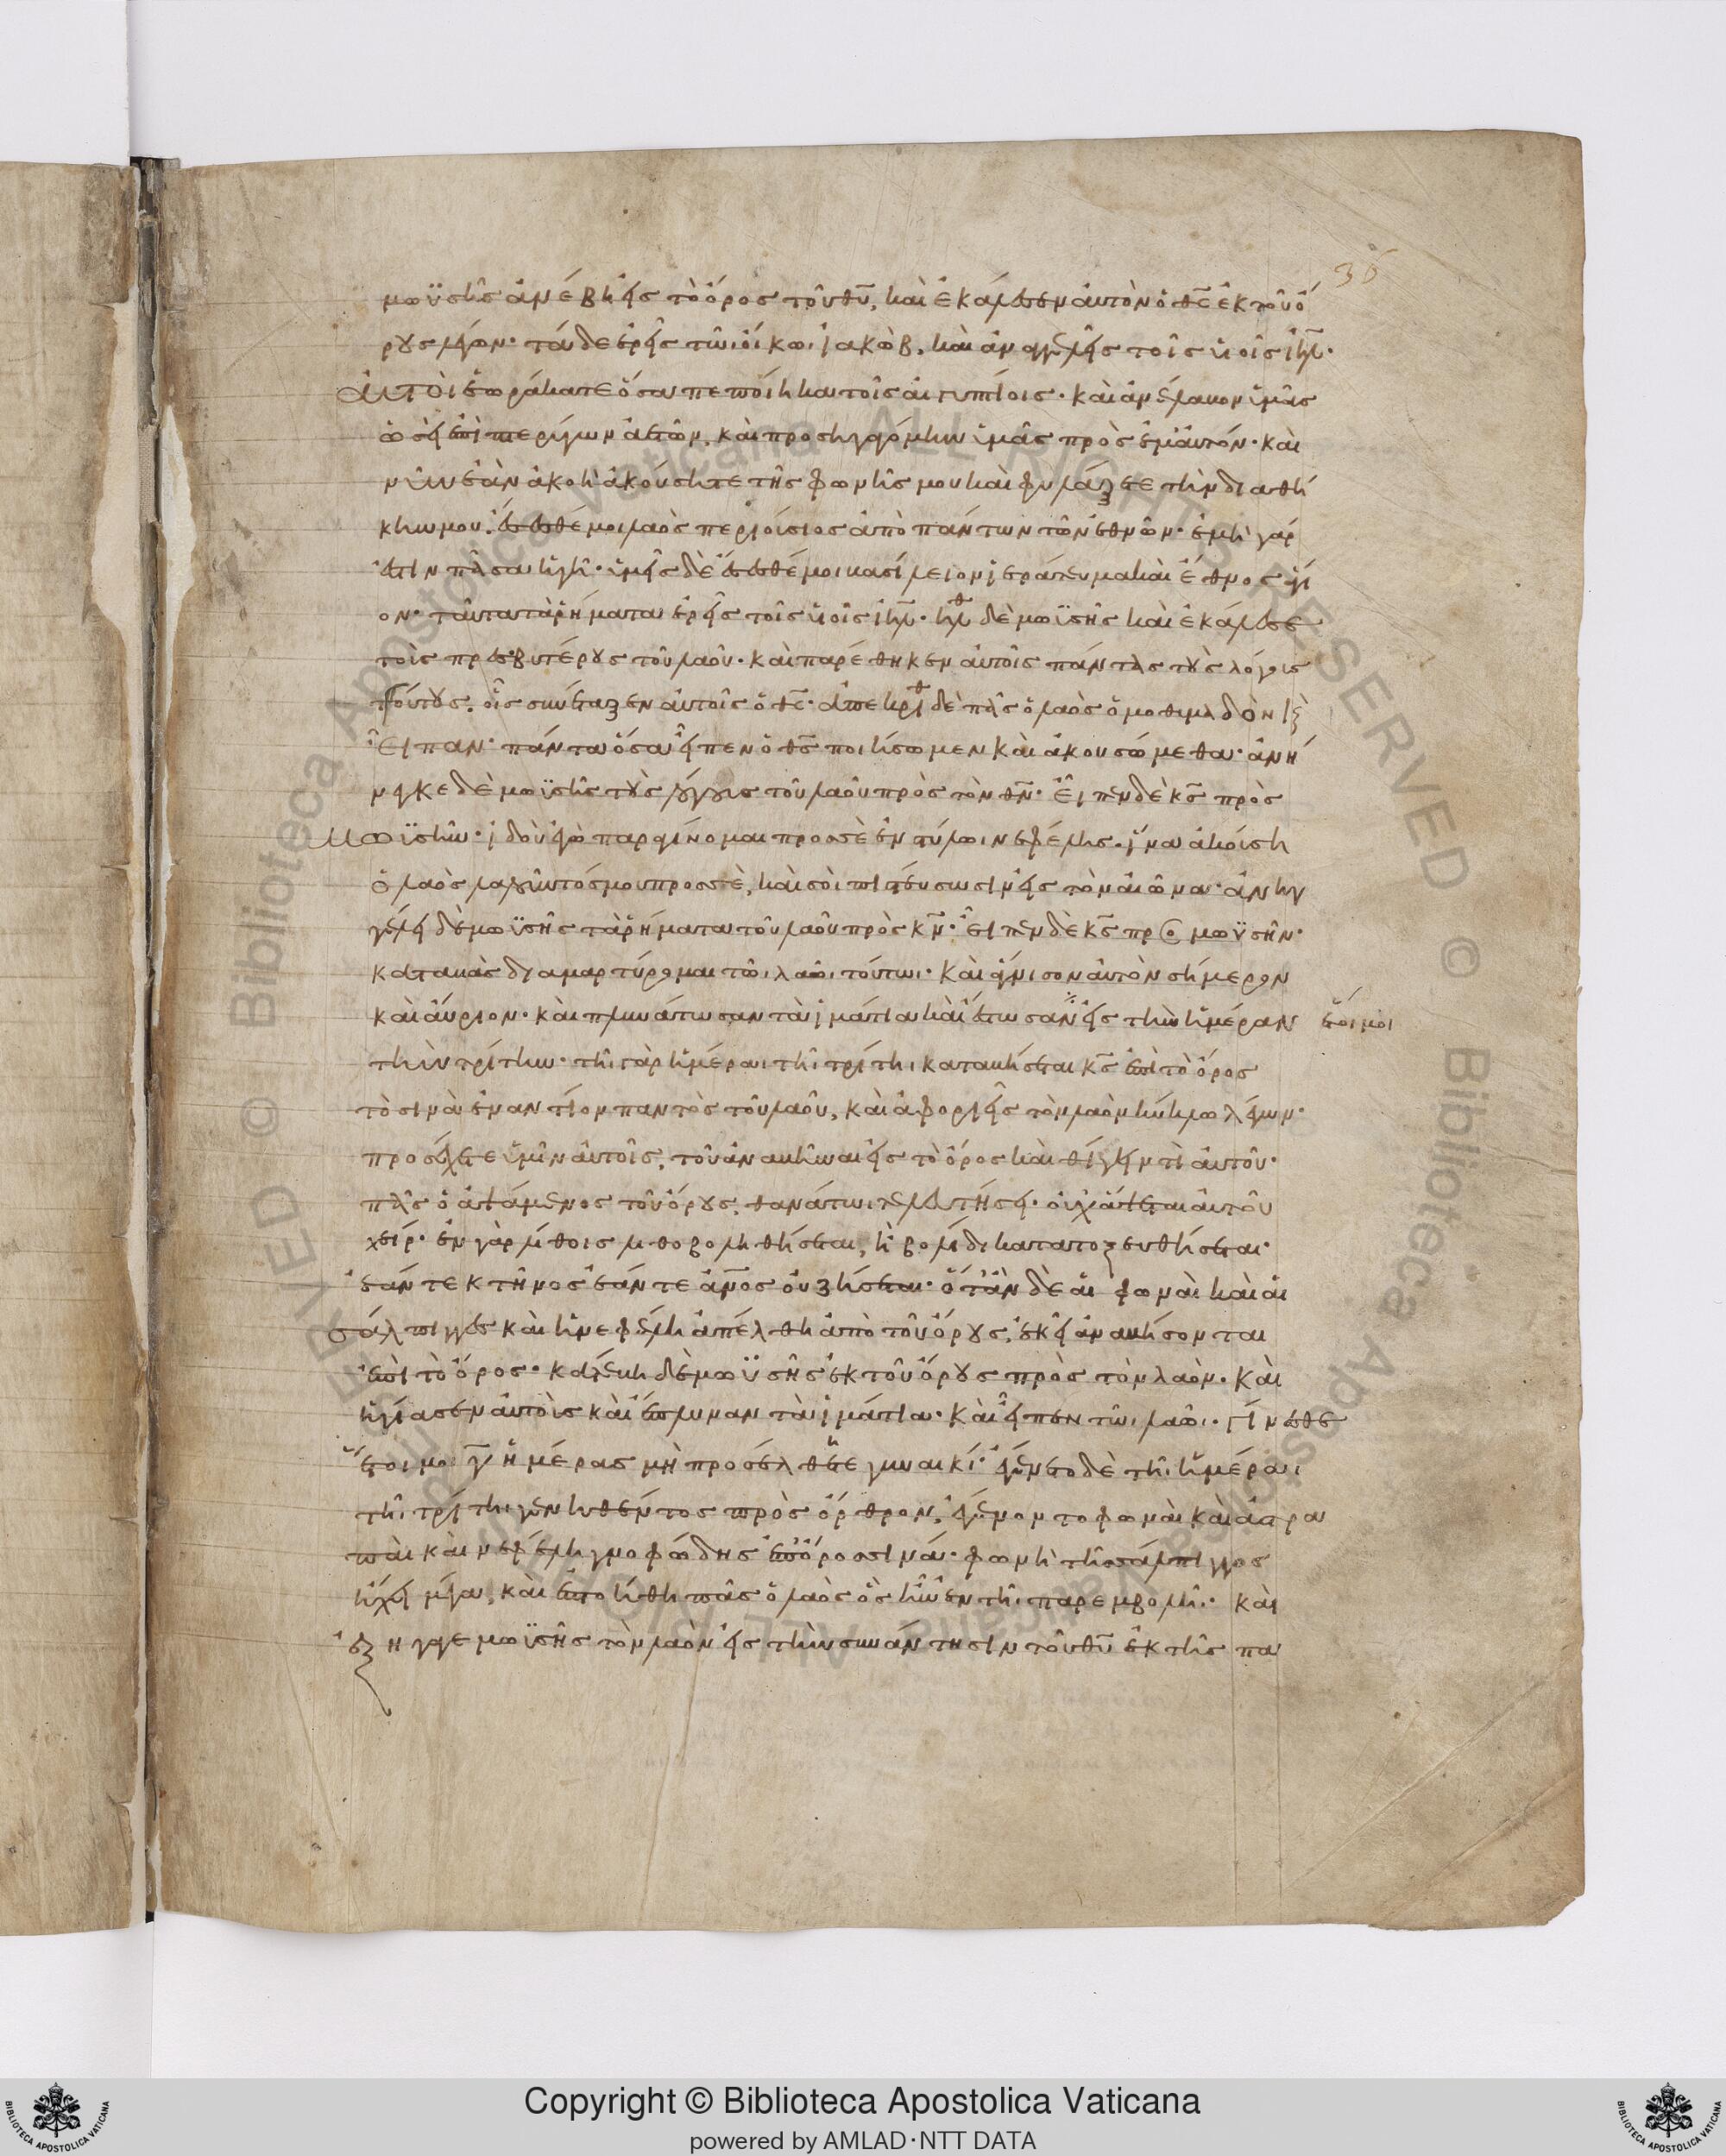 36
μωϋσῆς ἀνέβη εἰς τὸ ὄρος τοῦ θῦ, καὶ ἐκάλεσεν αὐτὸν ὁ θς ἐκ τοῦ ὄ
ρους λέγων· τάδε ἐρεῖς τῶι οἴκωι ἰακὼβ, καὶ ἀναγγελεῖς τοῖς υἱοῖς ιηλ·
Αὐτοὶ ἑωράκατε ὅσα πεποίηκα τοῖς αἰγυπτίοις· καὶ ἀνέλαβον ὑμᾶς
ὡσεὶ ἐπὶ πτερύγων ἀετῶν, καὶ προσηγαγόμην ὑμᾶς πρὸς ἐμαυτόν· καὶ
νῦν ἐὰν ἀκοῆ ἀκούσητε τῆς φωνῆς μου καὶ φυλάξετε τὴν διαθή
κην μου, ἔσεσθέ μοι λαὸς περιούσιος ἀπὸ πάντων τῶν ἐθνῶν· ἐμὴ γάρ
ἐστιν πᾶσα ἡ γῆ· ὑμεῖς δὲ ἔσεσθέ μοι βασίλειον ἱεράτευμα καὶ ἔθνος ἅγι
ον· ταῦτα τὰ ῥήματα ἐρεῖς τοῖς υἱοῖς ιηλ· ἦλθ δὲ μωϋσῆς καὶ ἐκάλεσε
τοὺς πρεσβυτέρους τοῦ λαοῦ· καὶ παρέθηκεν αὐτοῖς πάντας τοὺς λόγους
τούτους, οὓς συνέταξεν αὐτοῖς ὁ θς· ἀπεκρίθ δὲ πᾶς ὁ λαὸς ὁμοθυμαδὸν καὶ
εἶπαν· πάντα ὅσα εἶπεν ὁ θς ποιήσωμεν καὶ ἀκουσώμεθα· ἀνή
νεγκε δὲ μωϋσῆς τοὺς λόγους τοῦ λαοῦ πρὸς τὸν θν· εἶπεν δὲ κς πρὸς
Μωϋσῆν· ἰδοὺ ἐγὼ παραγίνομαι προσσὲ ἐν στύλωι νεφέλης, ἵνα ἀκούση
ὁ λαὸς λαλοῦντός μου προσσὲ, καὶ σοὶ πιστεύσωσιν εἰς τὸν αἰῶνα· ἀνήγ
γειλε δὲ μωϋσῆς τὰ ῥήματα τοῦ λαοῦ πρὸς κν· εἶπεν δὲ κς πρὸς μωϋσῆν·
καταβὰς διαμαρτύραμαι τῶι λαῶι τούτωι· καὶ ἅγνισον αὐτὸν σήμερον
καὶ αὔριον· καὶ πλυνάτωσαν τὰ ἱμάτια καὶ ἔστωσαν εἰς τὴν ἡμέραν ἕτοιμοι
τὴν τρίτην· τῆι γὰρ ἡμέραι τῆι τρίτηι καταβήσεται κς ἐπὶ τὸ ὄρος
τὸ σινὰ ἐναντίον παντὸς τοῦ λαοῦ, καὶ ἀφοριεῖς τὸν λαὸν κύκλω λέγων·
προσέχετε ὑμῖν αὐτοῖς, τοῦ ἀναβῆναι εἰς τὸ ὄρος καὶ θίγειν τὶ αὐτοῦ·
πᾶς ὁ ἁψάμενος τοῦ ὄρους, θανάτωι τελευτήσει· οὐχ ἅψεται αὐτοῦ
χείρ· ἐν γὰρ λίθοις λιθοβοληθήσεται, ἢ βολίδι κατατοξευθήσεται·
ἐάν τε κτῆνος ἐάν τε ἄνος οὐ ζήσεται· ὅτἂν δὲ αἱ φωναὶ καὶ αἱ
σάλπιγγες καὶ ἡ νεφέλη ἀπέλθη ἀπὸ τοῦ ὄρους, ἐκεῖ ἀναβήσονται
ἐπὶ τὸ ὄρος· κατέβη δὲ μωϋσῆς ἐκ τοῦ ὄρους πρὸς τὸν λαόν· καὶ
ἡγίασεν αὐτοὺς καὶ ἔπλυναν τὰ ἱμάτια· καὶ εἶπεν τῶι λαῶι· γίνεσθε
ἕτοιμοι γ ἡμέρας μὴ προσέλθητε γυναικί· ἐγένετο δὲ τῆι ἡμέραι
τῆι τρίτηι γενηθέντος πρὸς ὄρθρον, ἐγένοντο φωναὶ καὶ ἀστρα
παὶ καὶ νεφέλη γνοφώδης ἐπ' ὄρος σινά· φωνὴ τῆς σάλπιγγος
ἤχει μέγα, καὶ ἐπτοήθη πᾶς ὁ λαὸς ὃς ἦν ἐν τῆι παρεμβολῆι· καὶ
ἐξήγαγε μωϋσῆς τὸν λαὸν εἰς τὴν συνάντησιν τοῦ θῦ ἐκ τῆς πα
Copyright © Biblioteca Apostolica Vaticana
powered by AMLAD·NTT DATA